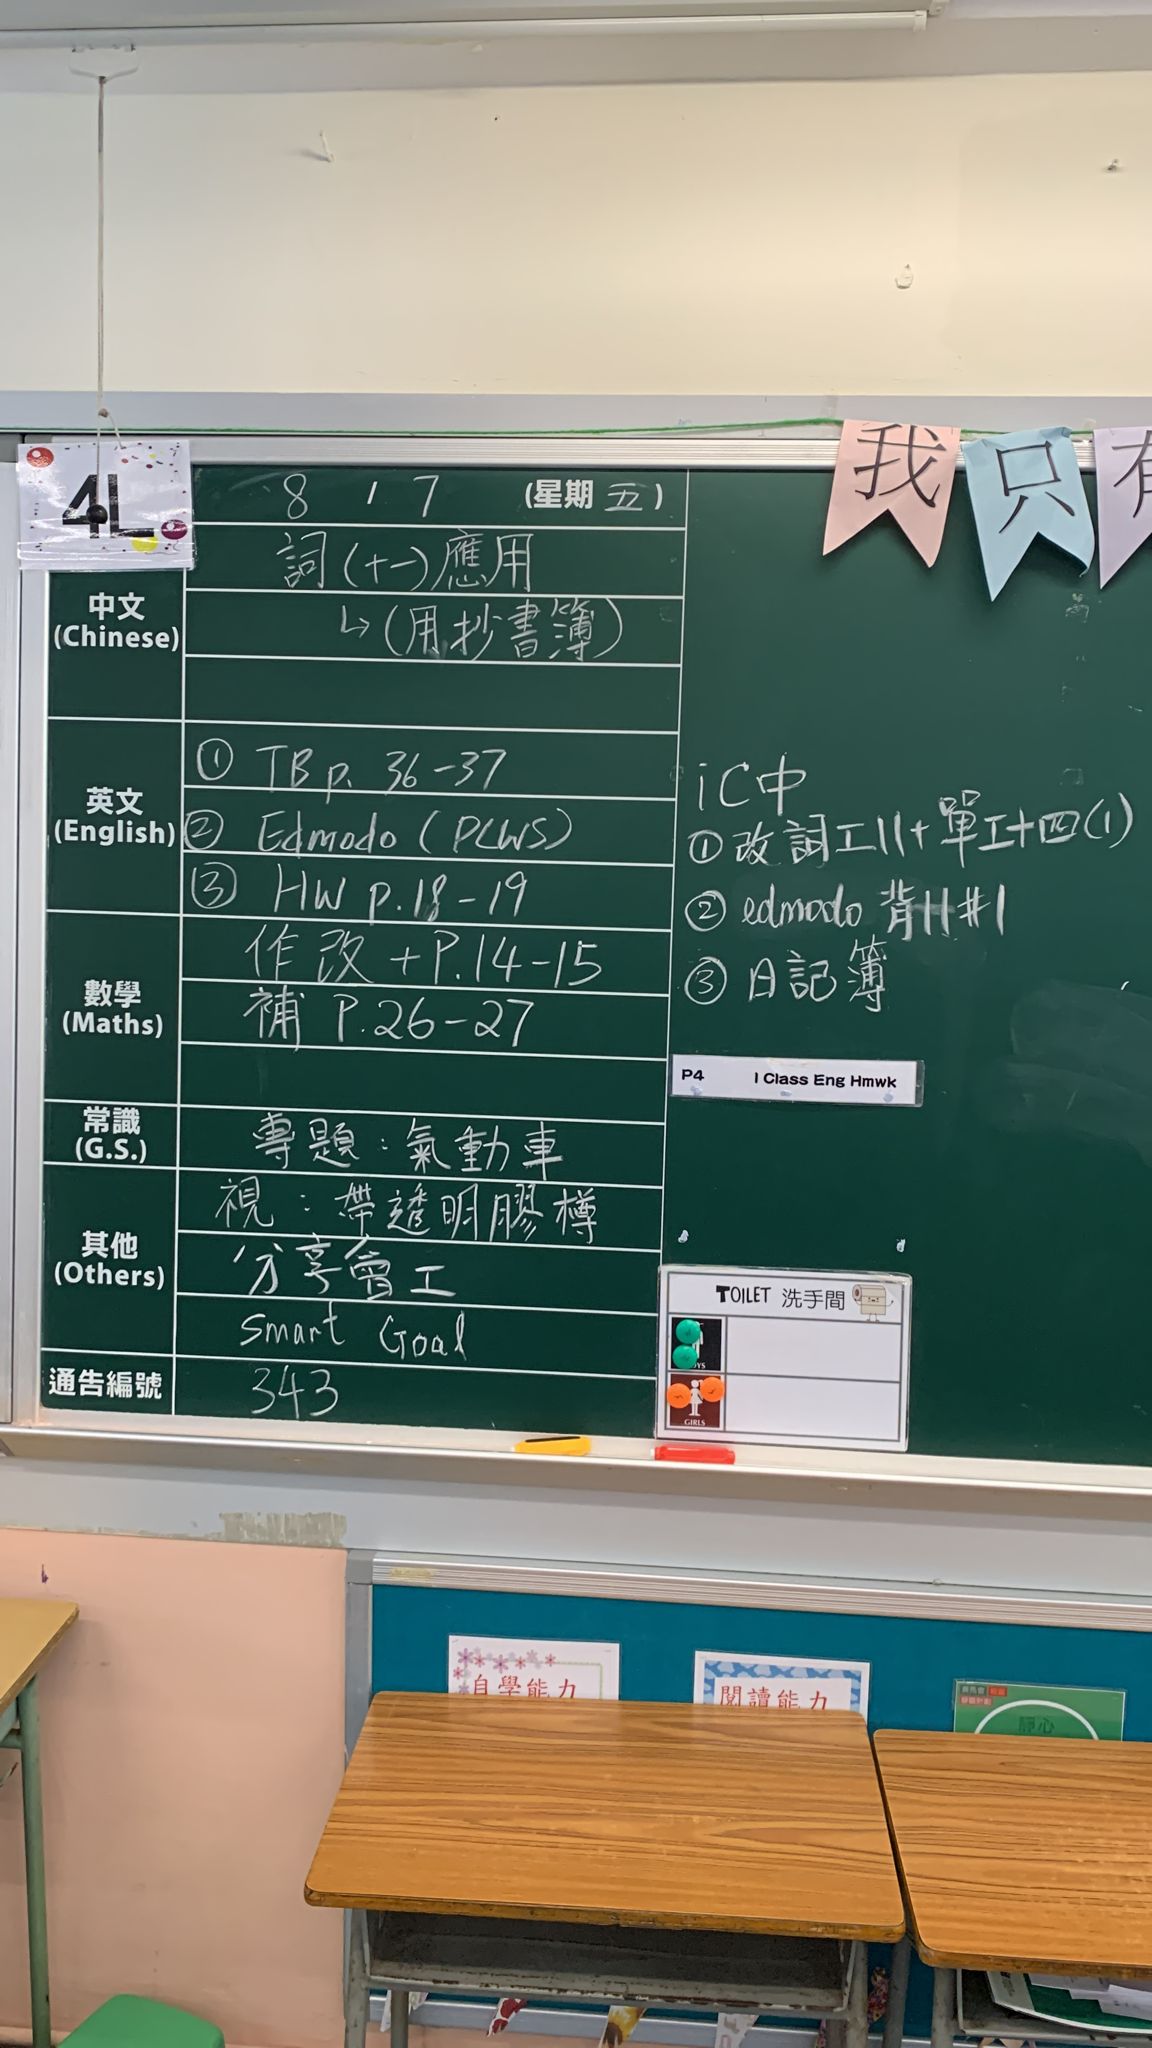 我只有
4L
8 / 7 (星期五)
中文
(Chinese)
詞(十一)應用
↳(用抄書簿)
英文
(English)
① TB p. 36-37
② Edmodo (PCWS)
③ HW p.18-19
數學
(Maths)
作改+P.14-15
補 P.26-27
常識
(G.S.)
專題:氣動車
其他
(Others)
視:帶透明膠樽
分享會工
Smart Goal
通告編號
343
iC中
①改詞工11+單工十四(1)
②edmodo 背11#1
③日記簿
P4 I Class Eng Hmwk
TOILET 洗手間
GIRLS
自學能力
閱讀能力
靜心